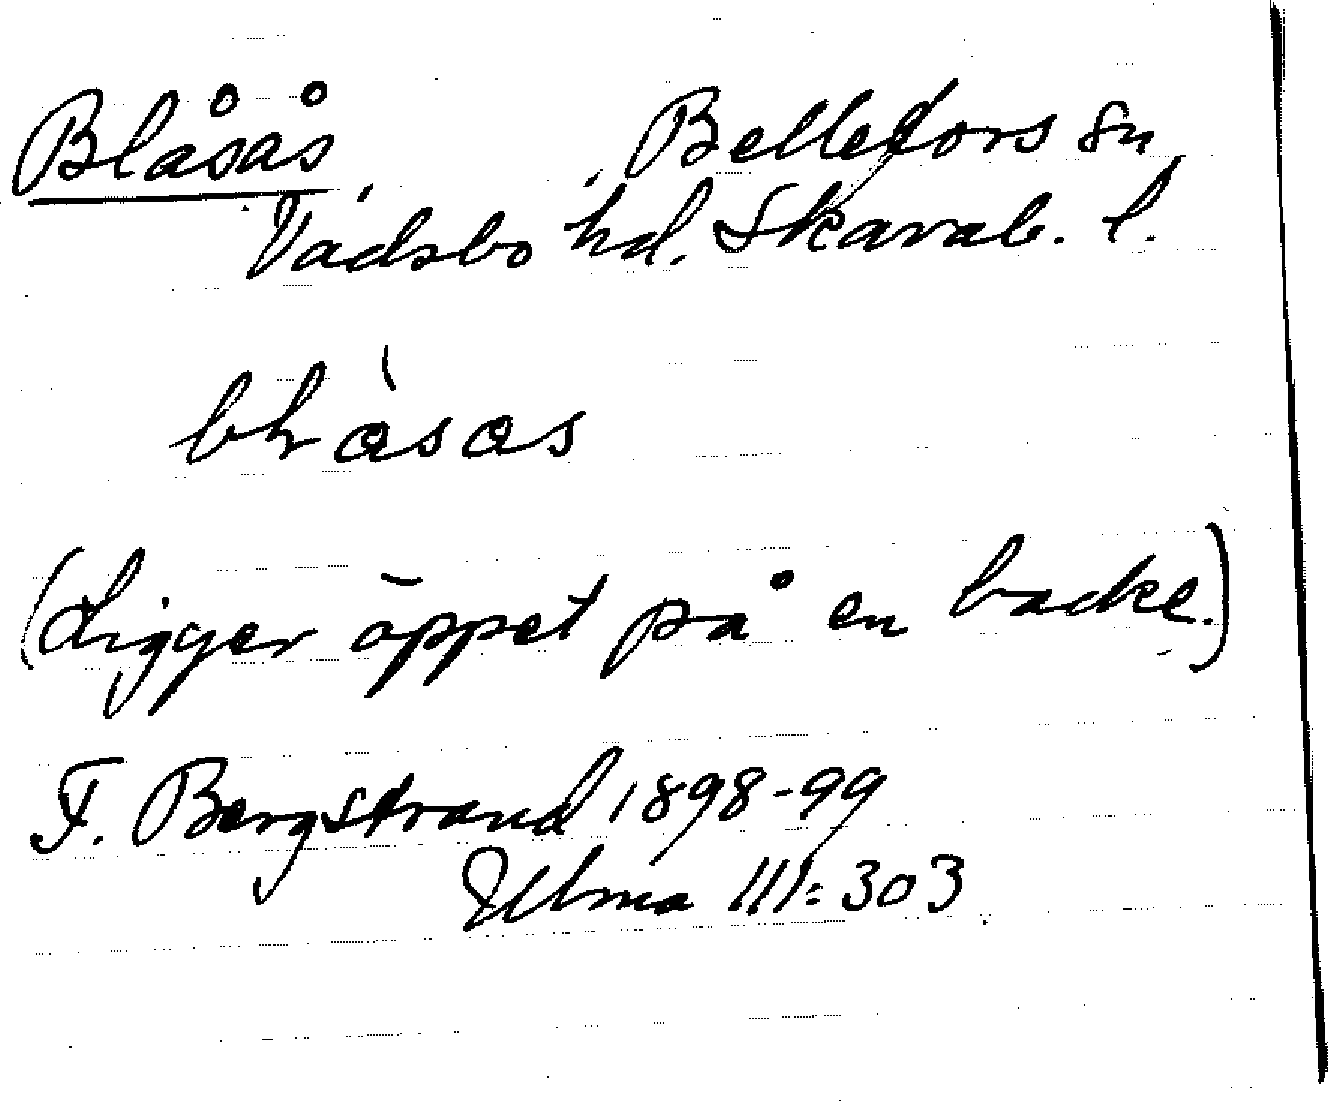 Blåsås, Bellefors sn,
Vadsbo hd. Skarab. l.
(Ligger öppet på en backe.)
F. Bergstrand 1898-99
Ulma 111:303